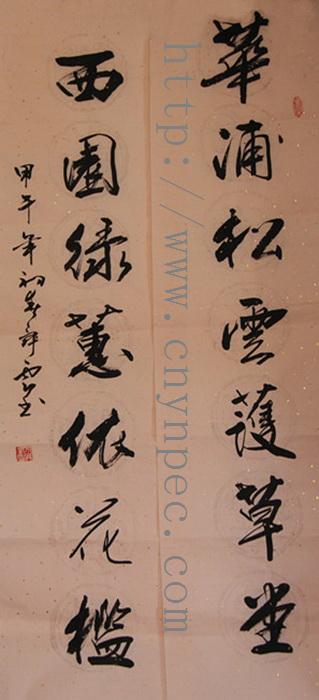 華浦松雲護草堂
西園綠蕙依花檻
甲午年初春
http://www.cnynpec.com